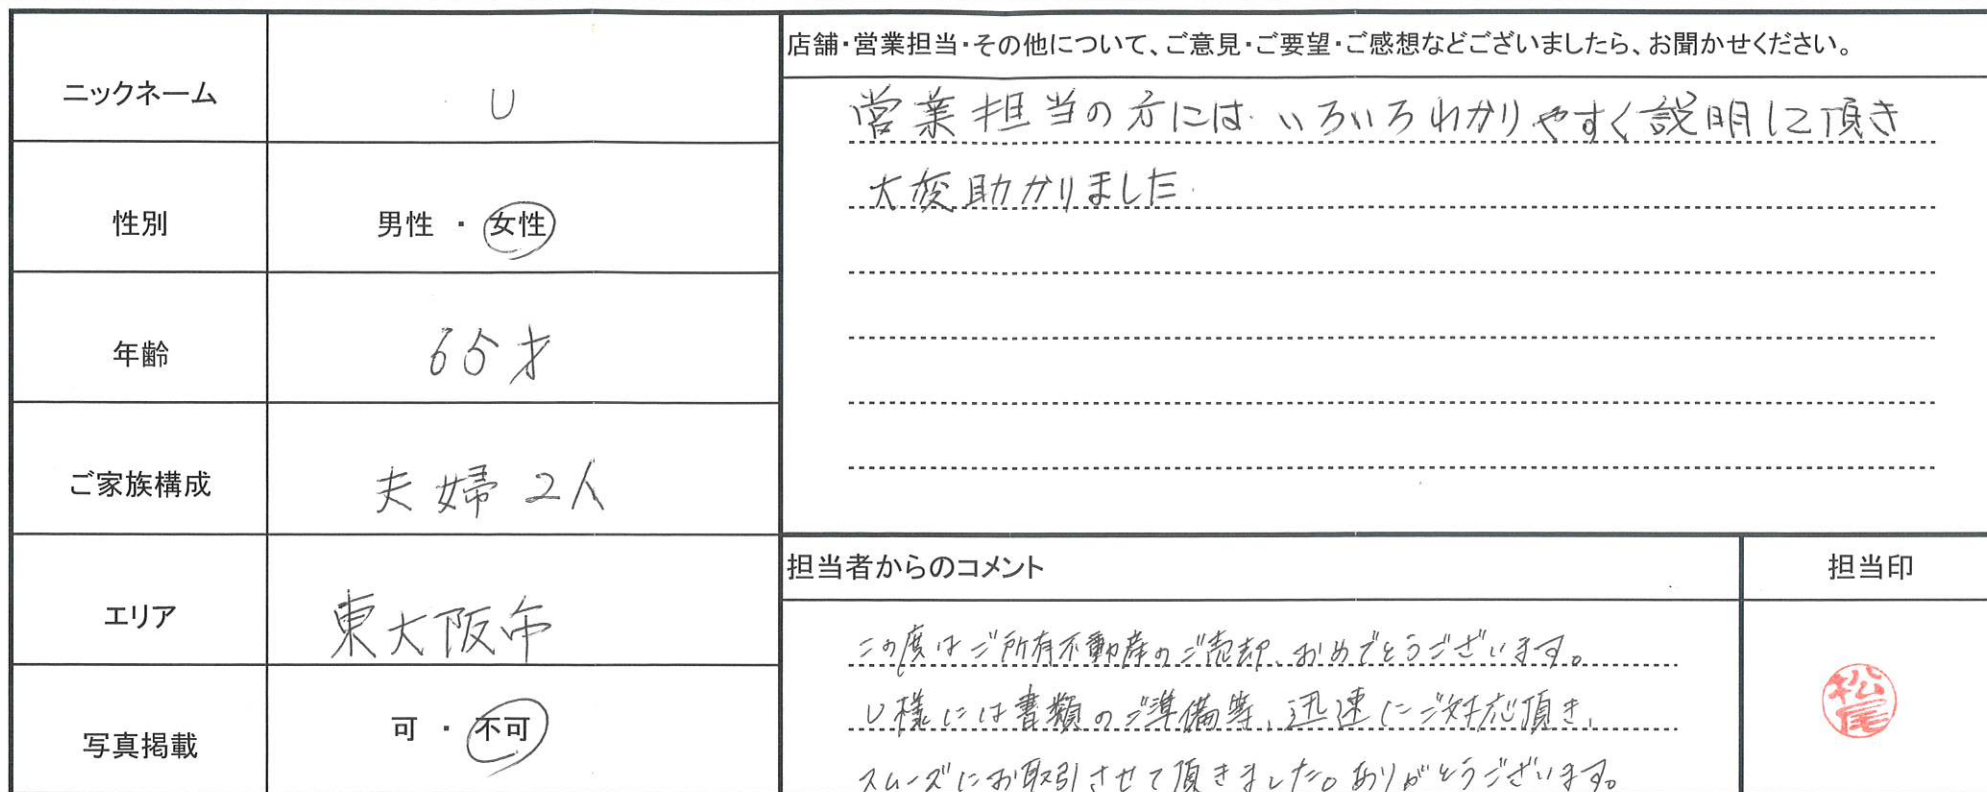 ニックネーム
U
性別
男性 ・ 女性
年齢
65才
ご家族構成
夫婦2人
エリア
東大阪市
写真掲載
可 ・ 不可
店舗・営業担当・その他について、ご意見・ご要望・ご感想などございましたら、お聞かせください。
営業担当の方には いろいろわかりやすく説明して頂き
大変助かりました.
担当者からのコメント
この度はご所有不動産のご売却、おめでとうございます。
U様には書類のご準備等、迅速にご対応頂き、
スムーズにお取引させて頂きました。ありがとうございます。
担当印
松尾